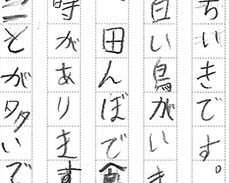 ちいきです。
白い鳥がいき
田んぼで食
時があります
ことが多いで